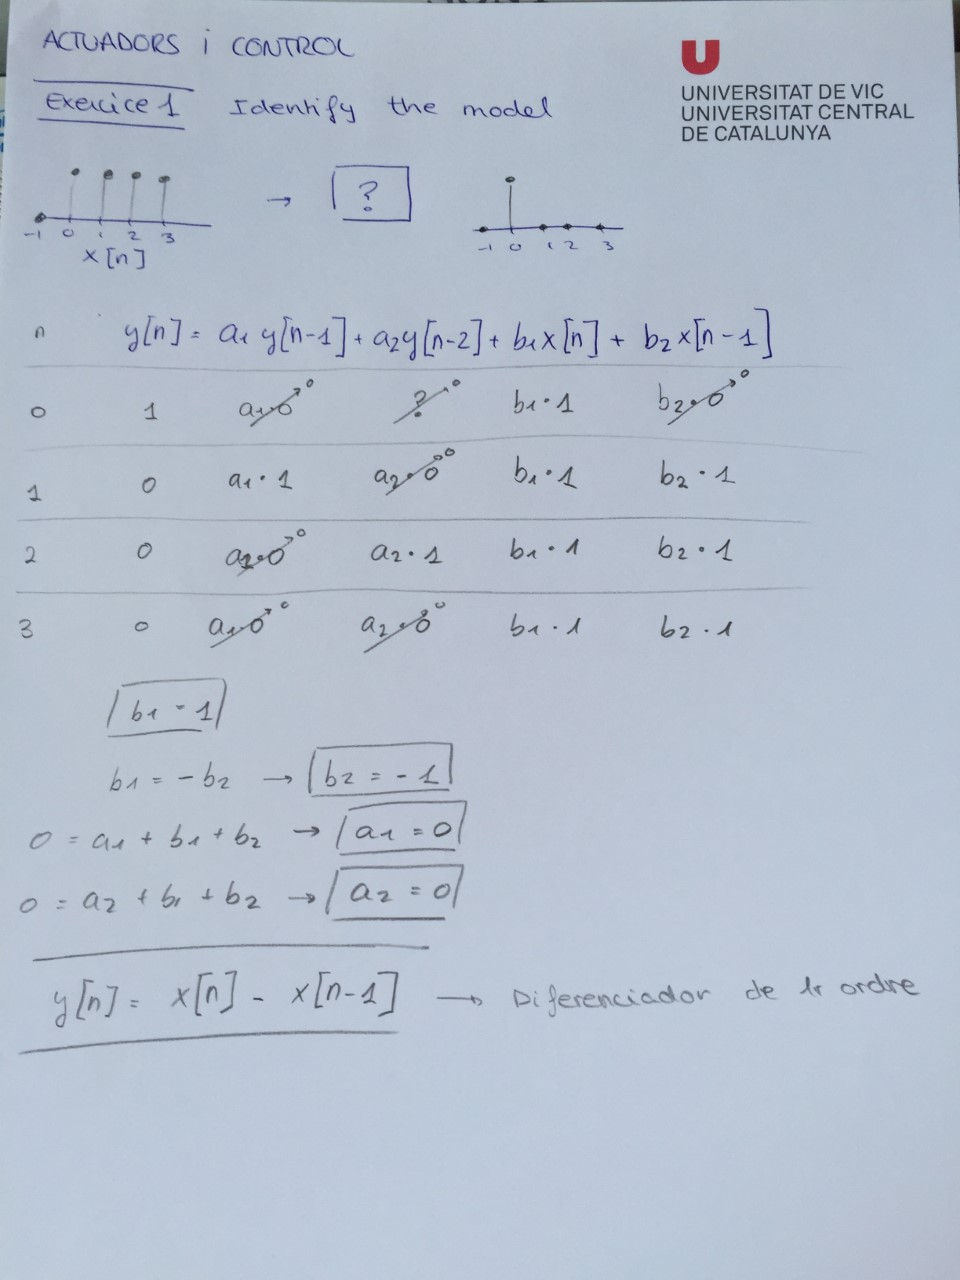 ACTUADORS i CONTROL
U
UNIVERSITAT DE VIC
UNIVERSITAT CENTRAL
DE CATALUNYA
Exercice 1 Identify the model
→ ?
-1 0 1 2 3
-1 0 1 2 3
x[n]
n y[n] = a1 y[n-1] + a2 y[n-2] + b1 x[n] + b2 x[n-1]
0 1 a1·0 0 ? 0 b1·1 b2·0 0
1 0 a1·1 a2·0 0 b1·1 b2·1
2 0 a2·0 0 a2·1 b1·1 b2·1
3 0 a1·0 0 a2·0 0 b1·1 b2·1
b1 = 1
b1 = -b2 → b2 = -1
0 = a1 + b1 + b2 → a1 = 0
0 = a2 + b1 + b2 → a2 = 0
y[n] = x[n] - x[n-1] → Diferenciador de 1r ordre